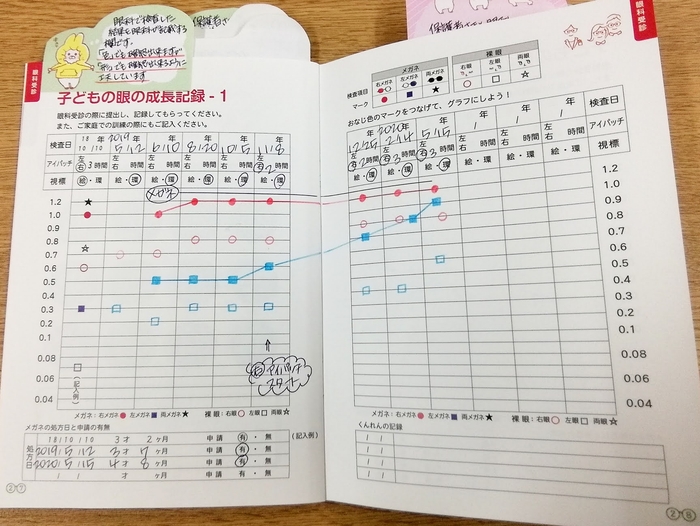 眼科で検査した
結果を眼科が記載する
欄です。
「色」でも確認出来ますが
「形」でも確認出来るように
工夫しています
保護者さ
眼科受診
子どもの眼の成長記録 - 1
眼科受診の際に提出し、記録してもらってください。
また、ご家庭での訓練の際にもご記入ください。
検査日 18年 10/10 2019年 5/12 年 6/10 年 8/20 年 10/15 年 11/8
アイパッチ 左右 3時間 左右 時間 左右 時間 左右 時間 左右 時間 左右 2時間
視標 絵・環 絵・環 絵・環 絵・環 絵・環 絵・環
メガネ
1.2
1.0
0.9
0.8
0.7
0.6
0.5
0.4
0.3
0.2
0.1
0.08
0.06
0.04
(記入例)
アイパッチ
スタート
メガネ: 右メガネ 左メガネ 両メガネ 裸眼: 右眼 左眼 両眼
メガネの処方日と申請の有無
処方日
18/10/10 3才 2ヶ月 申請 有・無 (記入例)
2019/5/12 3才 7ヶ月 申請 有・無
2020/5/15 4才 8ヶ月 申請 有・無
/ / 才 ヶ月 申請 有・無
27
眼科受診
検査項目
マーク
メガネ
右メガネ 左メガネ 両メガネ
裸眼
右眼 左眼 両眼
おなじ色のマークをつなげて、グラフにしよう!
年 12/25 2020年 2/14 年 5/15 年 / 年 / 年 / 年 / 検査日
左右 2時間 左右 3時間 左右 3時間 左右 時間 左右 時間 左右 時間 左右 時間 アイパッチ
絵・環 絵・環 絵・環 絵・環 絵・環 絵・環 絵・環 視標
1.2
1.0
0.9
0.8
0.7
0.6
0.5
0.4
0.3
0.2
0.1
0.08
0.06
0.04
メガネ: 右メガネ 左メガネ 両メガネ 裸眼: 右眼 左眼 両眼
くんれんの記録
/ /
/ /
/ /
/ /
28